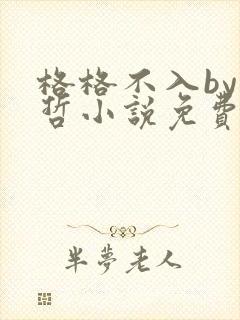 格格不入by
哲小說免費
半夢老人